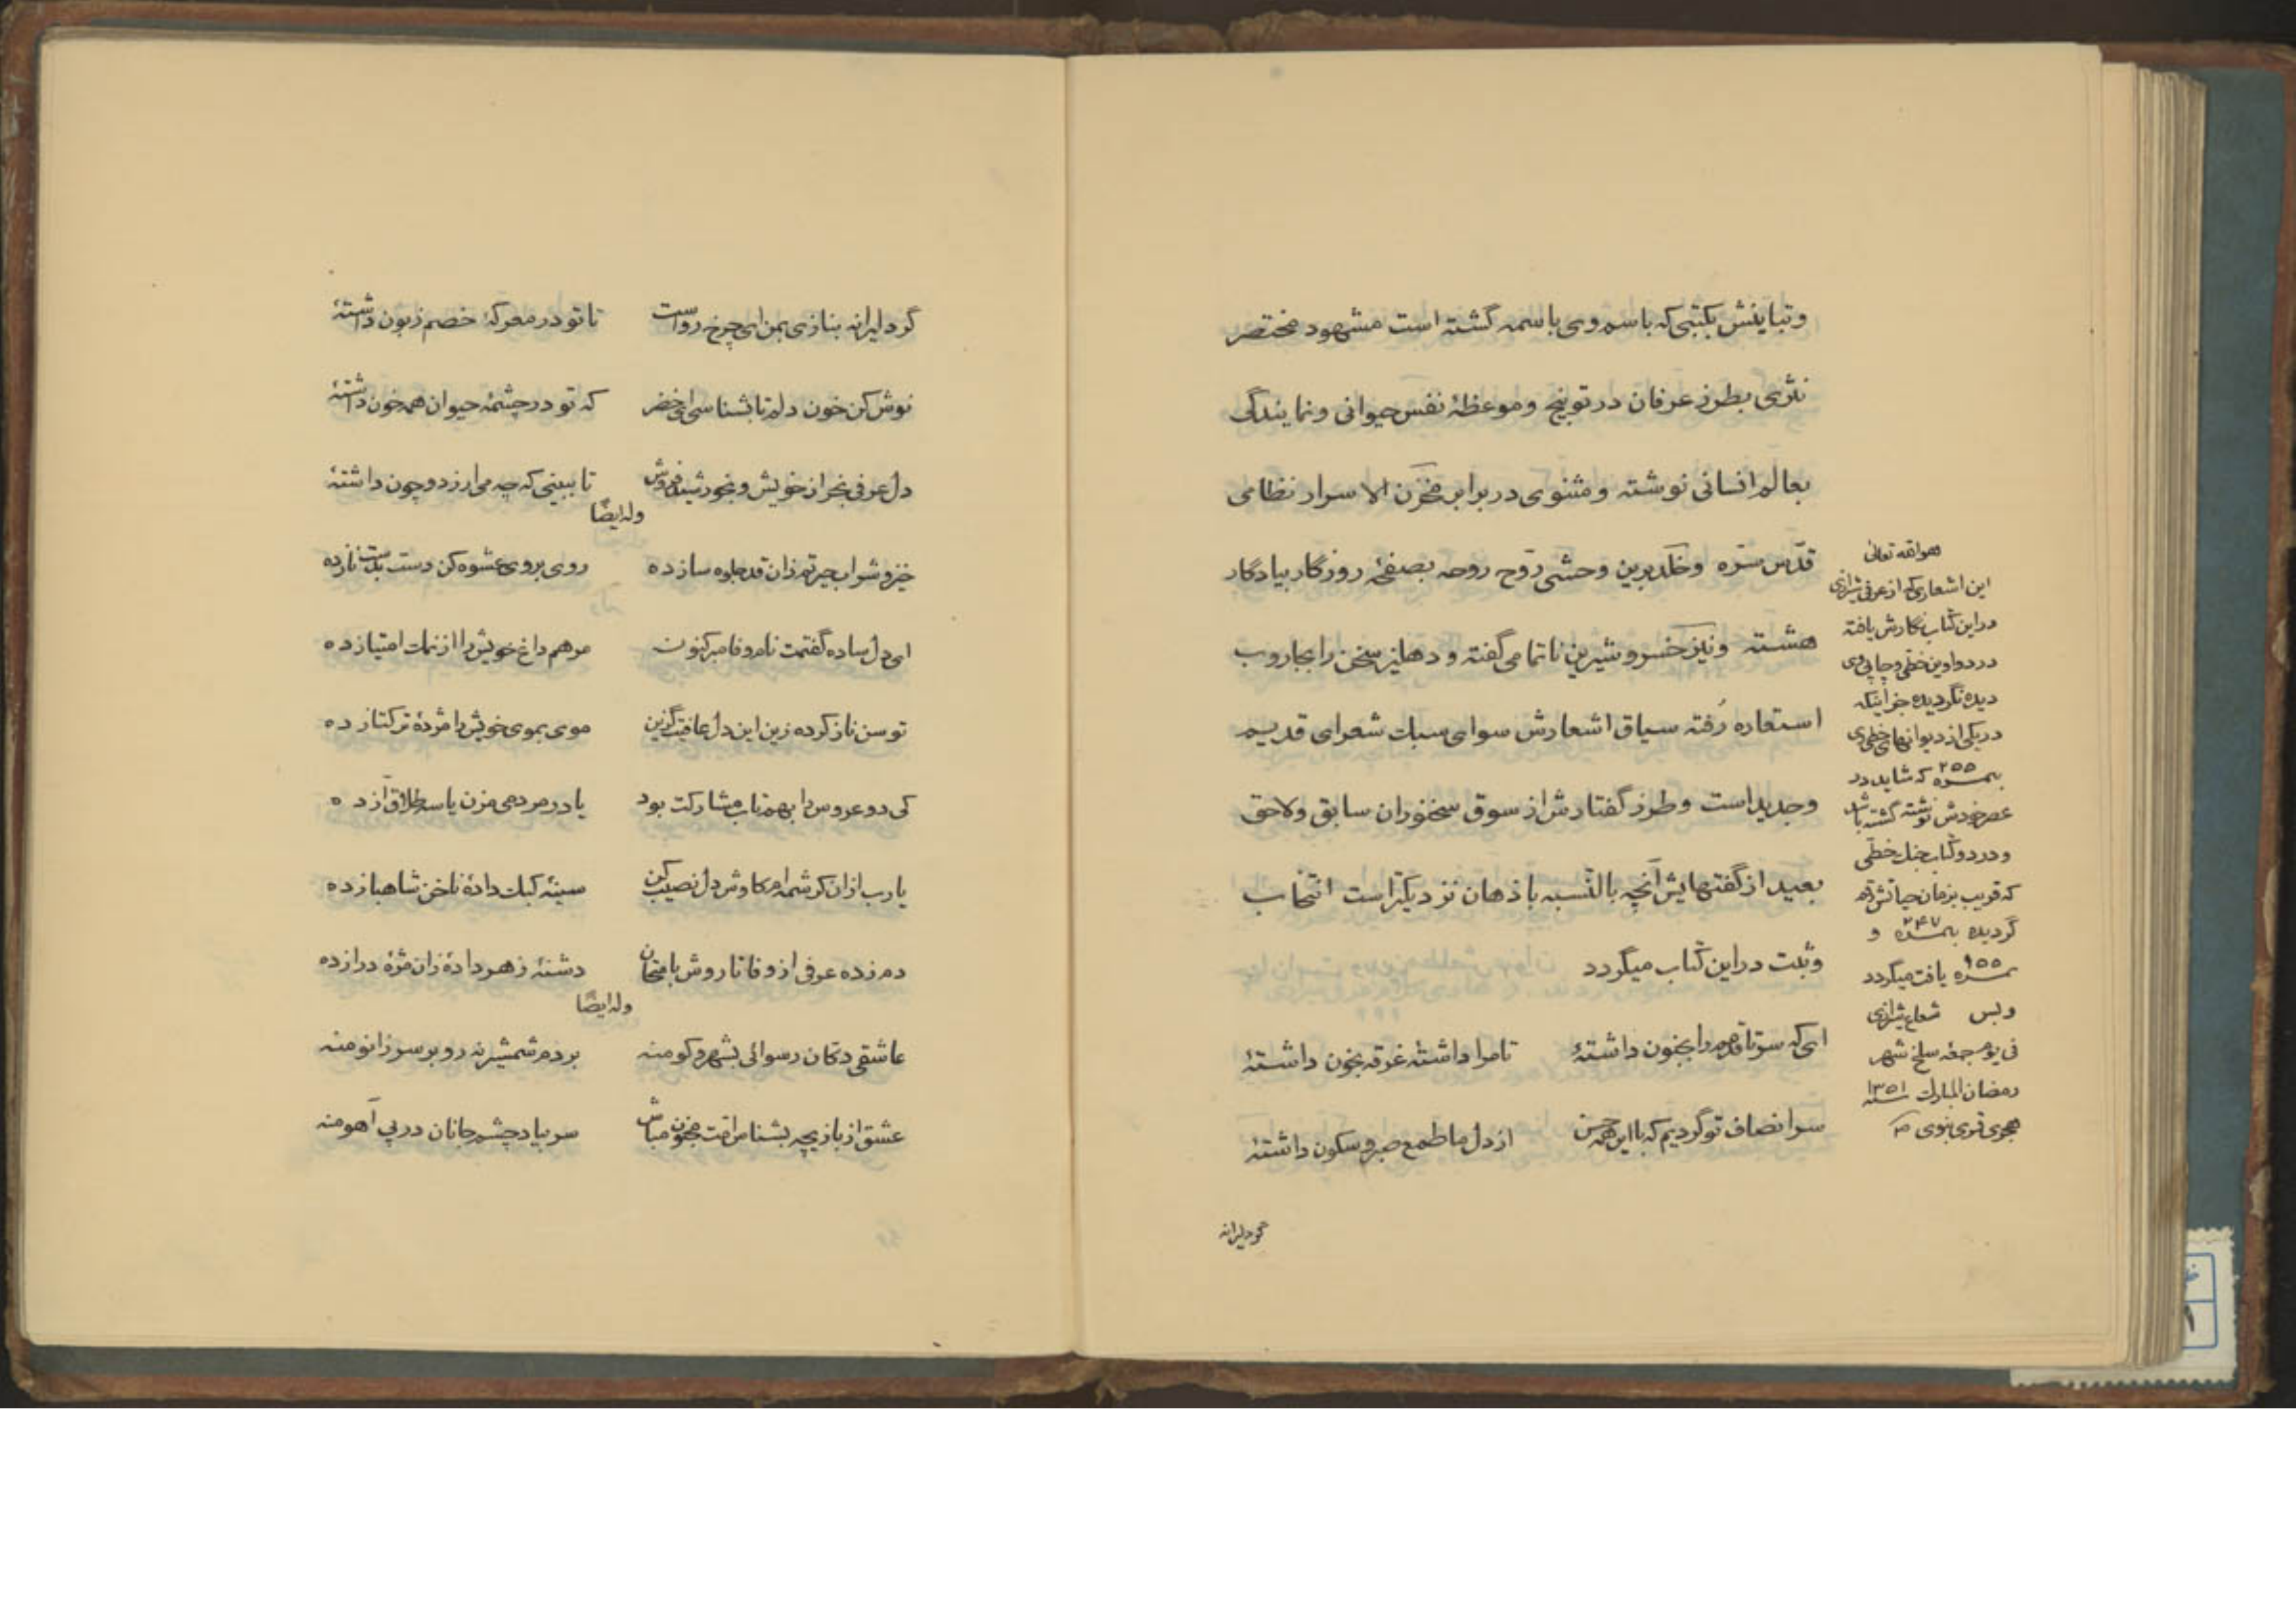 و تباینش بکتبی که باسم وی باسمه گشته است مشهود مختصر
نثری بطرز عرفان در توبیخ و موعظهٔ نفس حیوانی و نمایندگی
بعالم انسانی نوشته و مثنوی در برابر مخزن الاسرار نظامی
قدّس سرّه و خلد برین وحشی روّح روحه بصفحهٔ روزگار بیادگار
هشته و نیز خسرو شیرین ناتمامی گفته و دهلیز سخن را بجاروب
استعاره رُفته سیاق اشعارش سوای سبک شعرای قدیم
و جدید است و طرز گفتارش از سوق سخنوران سابق و لاحق
بعید از گفتهایش آنچه بالنّسبه باذهان نزدیکتر است انتخاب
و ثبت در این کتاب میگردد
ای که سر تا قدمم را بجنون داشتهٔ تا مرا داشتهٔ غرقه بخون داشتهٔ
سر انصاف تو گردیم که با این همه حسن از دل ما طمع صبر و سکون داشتهٔ
گر دلیرانه
هو الله تعالی
این اشعاری که از عرفی شیرازی
در این کتاب نگارش یافته
در دواوین خطی و چاپی وی
دیده نگردیده جز اینکه
در یکی از دیوانهای خطی وی
بنمره ۲۵۵ که شاید در
عصر خودش نوشته گشته باشد
و در دو کتاب جنگ خطّی
که قریب بزمان حیاتش رقم
گردیده بنمره ۲۴۷ و
نمره ۱۵۵ یافت میگردد
و بس شعاع شیرازی
فی یوم جمعه سلخ شهر
رمضان المبارک سنه ۱۳۵۱
هجری قمری نبوی ص
گر دلیرانه بنازی بمن ای چرخ رواست تا تو در معرکهٔ خصم زبون داشتهٔ
نوش کن خون دلم تا بشناسی ای خضر که تو در چشمهٔ حیوان همه خون داشتهٔ
دل عرفی بخر از خویش و بخورشید فروش تا ببینی که چه می‌ارزد و چون داشتهٔ
وله ایضًا
خیز و شراب حیرتم زان قد جلوه ساز ده روی بروی عشوه کن دست بدست ناز ده
ای دل ساده گفتمت نام وفا مبر کنون مرهم داغ خویش را از نمک امتیاز ده
توسن ناز کرده زین این دل عافیت گزین موی بموی خویش را مژدهٔ ترکتاز ده
کی دو عروس را بهم تاب مشارکت بود یا در مردمی مزن یا سه طلاق آز ده
یا رب ازان کرشمه‌ام کاوش دل نصیب کن سینهٔ کبک دادهٔ ناخن شاهباز ده
دم زده عرفی از وفا تا روش بامتحان دشنهٔ زهر دادهٔ زان مژهٔ دراز ده
وله ایضًا
عاشقی دکان رسوائی بشهر و کو منه بر دم شمشیر نه رو بر سر زانو منه
عشق از بازیچه بشناس آفت مجنون مباش سر بیاد چشم جانان در پی آهو منه